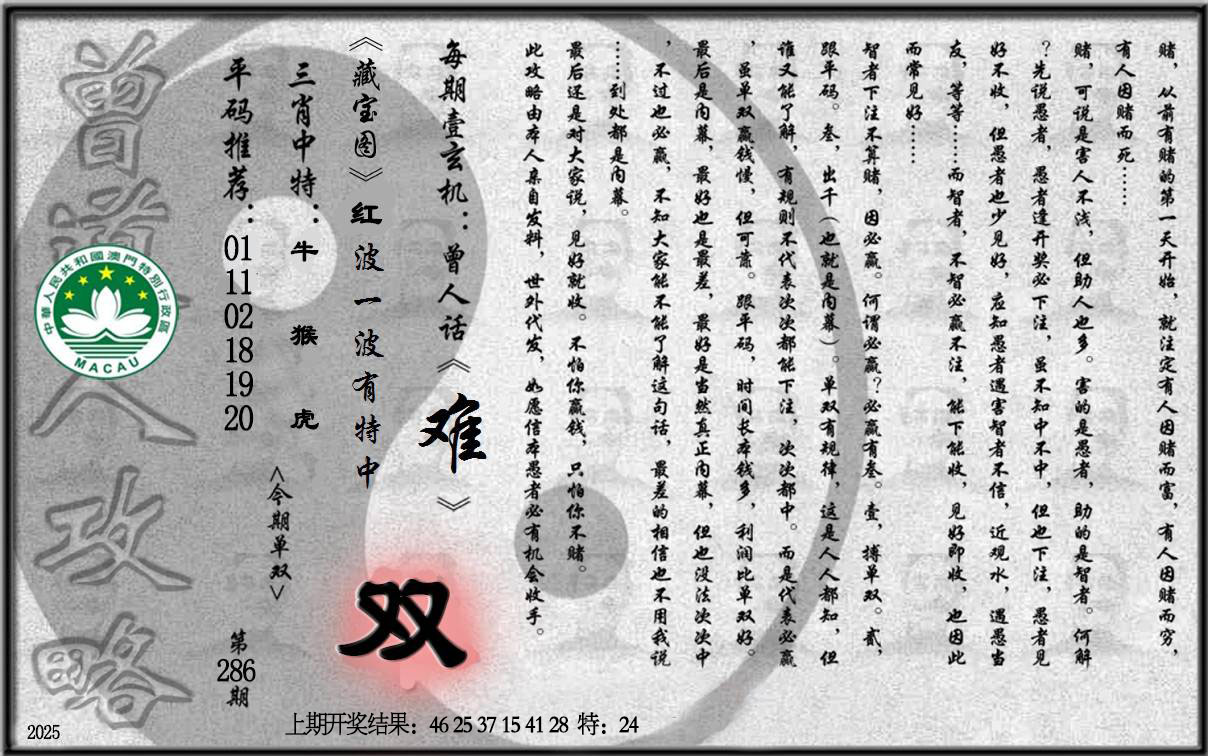 赌，从前有赌的第一天开始，就注定有人因赌而富，有人因赌而穷，
有人因赌而死……
赌，可说是害人不浅，但助人也多。害的是愚者，助的是智者。何解
？先说愚者，愚者逢开奖必下注，虽不知中不中，但也下注，愚者见
好不收，但愚者也少见好，应知愚者遇害智者不信，近观水，遇愚当
友，等等……而智者，不智必赢不注，能下能收，见好即收，也因此
而常见好……
智者下注不算赌，因必赢。何谓必赢？必赢有叁。壹，搏单双。贰，
跟平码。叁，出千（也就是内幕）。单双有规律，这是人人都知，但
谁又能了解，有规则不代表次次都能下注，次次都中。而是代表必赢
，虽单双赢钱慢，但可靠。跟平码，时间长本钱多，利润比单双好。
最后是内幕，最好也是最差，最好是当然真正内幕，但也没法次次中
，不过也必赢，不知大家能不能了解这句话，最差的相信也不用我说
……到处都是内幕。
最后还是对大家说，见好就收。不怕你赢钱，只怕你不赌。
此攻略由本人亲自发料，世外代发，如愿信本愚者必有机会收手。
每期壹玄机：曾人话《难》
《藏宝图》红波一波有特中
双
三肖中特：牛 猴 虎
<今期单双>
平码推荐：01 11 02 18 19 20
第286期
曾道人攻略
中華人民共和國澳門特別行政區
MACAU
上期开奖结果：46 25 37 15 41 28 特：24
2025